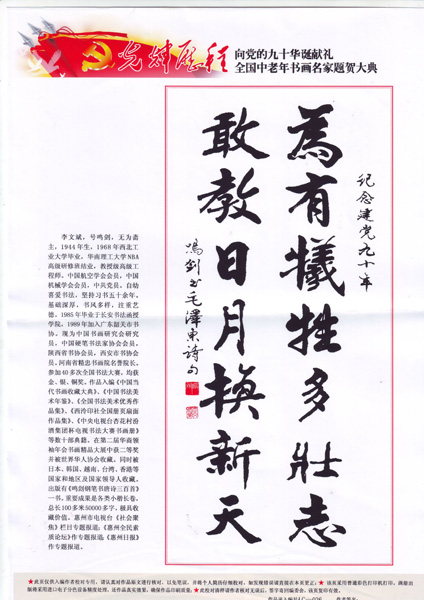 光辉历程
向党的九十华诞献礼
全国中老年书画名家题贺大典
纪念建党九十年
為有犧牲多壯志
敢教日月換新天
鳴剑书毛澤東詩句
李文斌，号鸣剑，无为斋
主，1944年生，1968年西北工
业大学毕业，华南理工大学NBA
高级研修班结业，教授级高级工
程师，中国航空学会会员，中国
机械学会会员，中共党员。自幼
喜爱书法，坚持习书五十余年，
基础深厚，书风多样，注重艺
德。1985年毕业于长安书法函授
学院。1989年加入广东韶关市书
协。现为中国书画研究会研究
员，中国硬笔书法家协会会员，
陕西省书协会员，西安市书协会
员，河南省精忠书画院名誉院长。
参加40多次全国书法大赛，均获
金、银、铜奖。作品入编《中国当
代书画收藏大典》、《中国书法美
术年鉴》、《全国书法美术优秀作
品集》、《西泠印社全国册页扇面
作品集》、《中央电视台杏花村汾
酒集团杯电视书法大赛书画册》
等数十部典籍。在第二届华裔领
袖年会书画精品大展中获二等奖
并被世界华人协会收藏。同时被
日本、韩国、越南、台湾、香港等
国家和地区及国家领导人收藏。
出版有《鸣剑钢笔书唐诗三百首》
一书，重要成果是各类小楷长卷，
总长100多米50000多字，极具收
藏价值。惠州市电视台《社会聚
焦》栏目专题报道；《惠州全民素
质论坛》作专题报道；《惠州日报》
作专题报道。